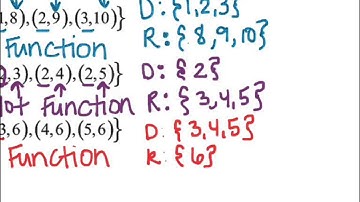 ,8),(2,9),(3,10)} D: {1,2,3}
Function R: {8,9,10}
,3),(2,4),(2,5)} D: {2}
Not Function R: {3,4,5}
3,6),(4,6),(5,6)} D: {3,4,5}
Function R: {6}